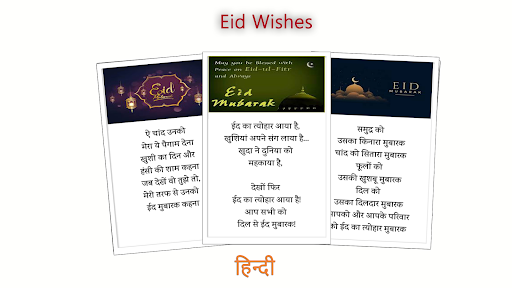 Eid Wishes
Eid
Mubarak
ऐ चांद उनको
मेरा ये पैगाम देना
खुशी का दिन और
हंसी की शाम कहना
जब देखें वो तुझे तो,
मेरी तरफ से उनको
ईद मुबारक कहना
May you be Blessed with
Peace on Eid-ul-Fitr
and Always
Eid
Mubarak
ईद का त्योहार आया है,
खुशियां अपने संग लाया है...
खुदा ने दुनिया को
महकाया है,
देखों फिर
ईद का त्योहार आया है!
आप सभी को
दिल से ईद मुबारक!
EID
MUBARAK
समुद्र को
उसका किनारा मुबारक
चांद को सितारा मुबारक
फूलों को
उसकी खुशबू मुबारक
दिल को
उसका दिलदार मुबारक
आपको और आपके परिवार
को ईद का त्योहार मुबारक
हिन्दी